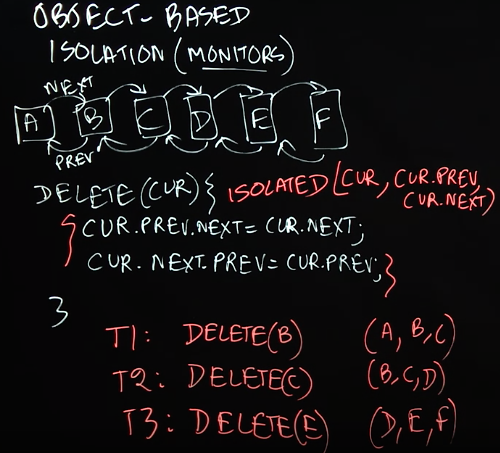 OBJECT-BASED
ISOLATION (MONITORS)
NEXT
A B C D E F
PREV
DELETE(CUR) { ISOLATED(CUR, CUR.PREV,
CUR.NEXT)
{ CUR.PREV.NEXT = CUR.NEXT;
CUR.NEXT.PREV = CUR.PREV; }
}
T1: DELETE(B) (A, B, C)
T2: DELETE(C) (B, C, D)
T3: DELETE(E) (D, E, F)